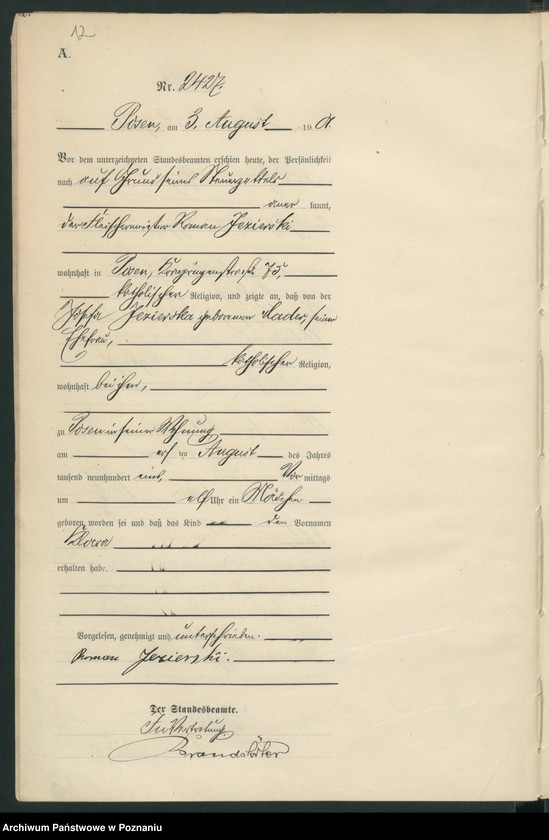 12
A.
Nr. 2427.
Posen, am 3. August 1901.
Vor dem unterzeichneten Standesbeamten erschien heute, der Persönlichkeit
nach auf Grund seines Steuerzettels
aner kannt,
der Fleischermeister Roman Jezierski
wohnhaft in Posen, 75
katholischer Religion, und zeigte an, daß von der
Jezierska geborenen Mader, seiner
Ehefrau,
katholischer Religion,
wohnhaft bei ihm,
zu Posen in seiner Wohnung
am ersten August des Jahres
tausend neunhundert eins, Vor mittags
um elf Uhr ein Mädchen
geboren worden sei und daß das Kind den Vornamen
Klara
erhalten habe.
Vorgelesen, genehmigt und unterschrieben.
Roman Jezierski.
Der Standesbeamte.
In Vertretung
Brandstäter
Archiwum Państwowe w Poznaniu